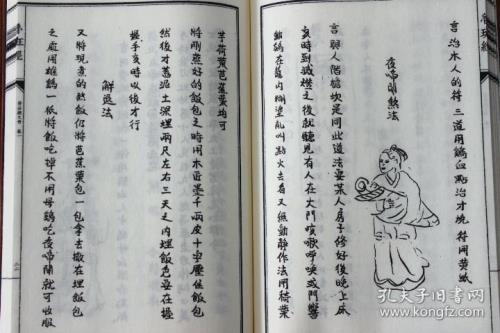 言治木人的符三道用鷄血點治才灵符用黃紙
夜啼鬧煞法
言弱人階檐坎是同此道法要某人房子修好後晚上床
亥時到滅燈之後就聽見有人在大門嘆歌呼喚或門響
鷄鴨在圈内糊塗亂叫點火去看又無動靜作法用稀葉
芋荷葉芭蕉葉均可
將剛蒸好的飯包之時用木匠墨千兩皮十字壓住飯包
然後才蓋泥土深埋兩尺左右三天之内埋飯包要在
握手亥時以後才行
解煞法
又將現煮的熱飯仍將芭蕉葉包一包拿去撒在埋飯包
之處用雄鷄一隻將飯吃掉不用母鷄吃夜啼鬧就可收服
孔夫子旧书网
www.kongfz.com